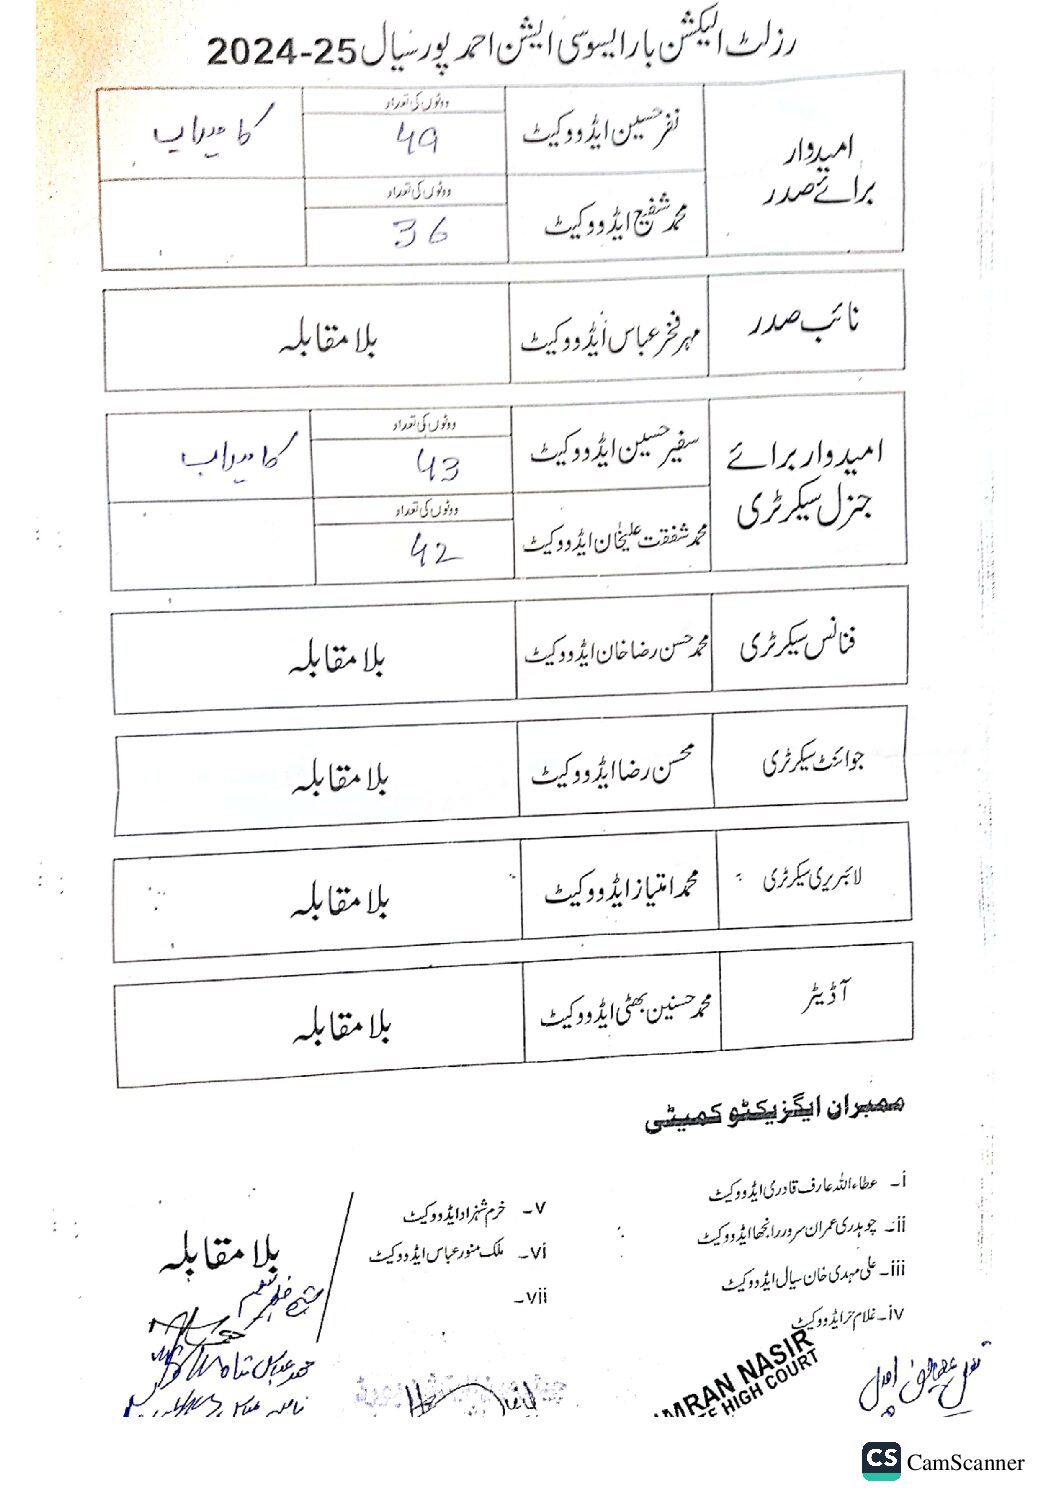 رزلٹ الیکشن بار ایسوسی ایشن احمد پور سیال 2024-25
امیدوار برائے صدر
نفر حسین ایڈووکیٹ
ووٹوں کی تعداد
49
کامیاب
محمد شفیع ایڈووکیٹ
ووٹوں کی تعداد
36
نائب صدر
مہر فخر عباس ایڈووکیٹ
بلا مقابلہ
امیدوار برائے جنرل سیکرٹری
سفیر حسین ایڈووکیٹ
ووٹوں کی تعداد
43
کامیاب
محمد شفقت علیخان ایڈووکیٹ
ووٹوں کی تعداد
42
فنانس سیکرٹری
محمد حسن رضا خان ایڈووکیٹ
بلا مقابلہ
جوائنٹ سیکرٹری
محسن رضا ایڈووکیٹ
بلا مقابلہ
لائبریری سیکرٹری
محمد امتیاز ایڈووکیٹ
بلا مقابلہ
آڈیٹر
محمد حسنین بھٹی ایڈووکیٹ
بلا مقابلہ
ممبران ایگزیکٹو کمیٹی
i۔ عطاء اللہ عارف قادری ایڈووکیٹ
ii۔ چوہدری عمران سرور رانجھا ایڈووکیٹ
iii۔ علی مہدی خان سیال ایڈووکیٹ
iv۔ غلام حر ایڈووکیٹ
v۔ خرم شہزاد ایڈووکیٹ
vi۔ ملک منور عباس ایڈووکیٹ
vii۔
بلا مقابلہ
MRAN NASIR
HIGH COURT
CS CamScanner